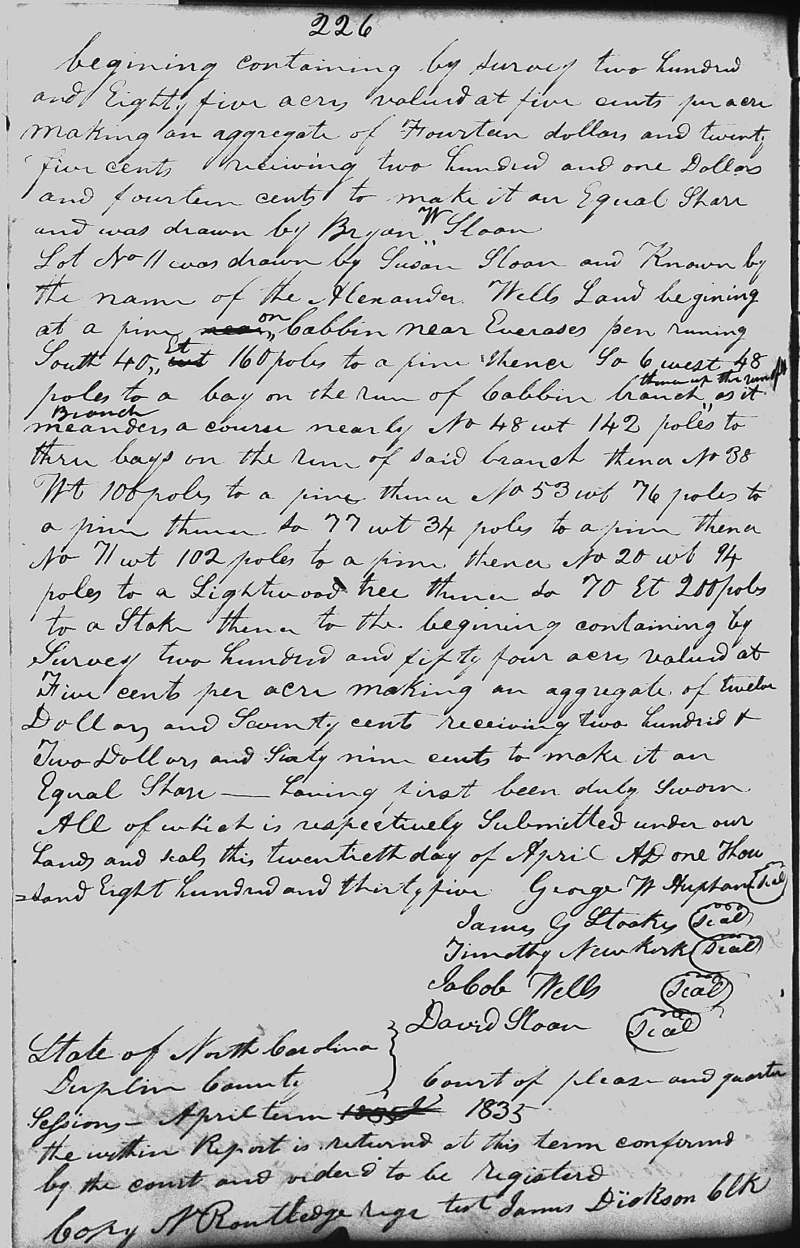 226
begining containing by survey two hundred
and Eighty five acres valued at five cents per acre
making an aggregate of Fourteen dollars and twenty
five cents receiving two hundred and one Dollars
and fourteen cents to make it an Equal Share
and was drawn by Bryan W Sloan
Lot No 11 was drawn by Susan Sloan and Known by
the name of the Alexander Wells Land begining
at a pine near on Cabbin near Everases pen runing
South 40 Et wt 160 poles to a pine thence So 6 west 48
poles to a bay on the run of Cabbin branch thence up the run of sd as it
Branch
meanders a course nearly No 48 wt 142 poles to
three bays on the run of said branch thence No 38
Wt 100 poles to a pine thence No 53 wt 76 poles to
a pine thence So 77 wt 34 poles to a pine thence
No 71 wt 102 poles to a pine thence No 20 wt 94
poles to a Lightwood tree thence So 70 Et 200 poles
to a Stake thence to the begining containing by
Survey two hundred and fifty four acres valued at
Five cents per acre making an aggregate of twelve
Dollars and Seventy cents receiving two hundred &
Two Dollars and Sixty nine cents to make it an
Equal Share — having first been duly Sworn
All of which is respectively Submitted under our
hands and seals this twentieth day of April AD one Thou
=sand Eight hundred and thirty five George W Seal
James G Stokes Seal
Timothy Newkirk Seal
Jacob Wells Seal
David Sloan Seal
State of North Carolina
Duplin County } Court of pleas and quarter
Sessions - April term 1835 1835
the within Report is returned at this term confirmed
by the court and orderd to be registerd
Copy N Routledge regr test James Dickson Clk